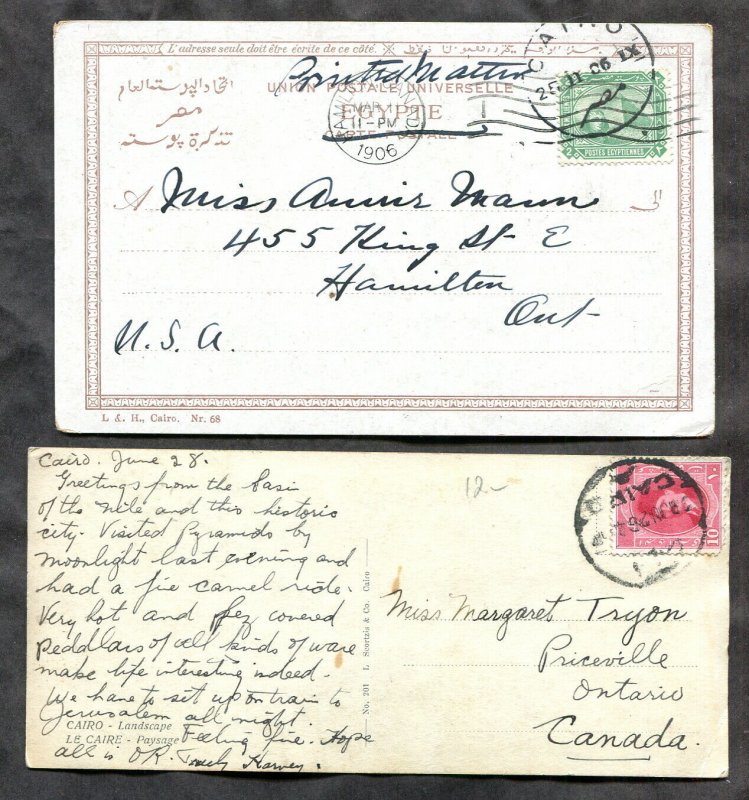 L'adresse seule doit être écrite de ce côté.
Printed Matter
UNION POSTALE UNIVERSELLE
اتحاد البوسته العام
EGYPTE
مصر
CARTE POSTALE
تذكرة بوسته
HAMILTON
MAR
11-PM
1906
CAIRO
25 II 06 IX
مصر
2 POSTES EGYPTIENNES ٢
A Miss Annie Mann الى
455 King St E
Hamilton
Ont
U.S.A.
L. & H., Cairo. Nr. 68
Cairo. June 28.
Greetings from the basin
of the Nile and this historic
city. Visited Pyramids by
moonlight last evening and
had a fie camel ride.
Very hot and fez covered
Peddlars of all kinds of ware
make life interesting indeed.
We have to set up on train to
Jerusalem all night.
CAIRO - Landscape
Feeling fine. Hope
LE CAIRE - Paysage
all is OK. Harvey.
No. 201 L. Scortzis & Co. Cairo
12-
CAIRO
10
Miss Margaret Tryon
Priceville
Ontario
Canada.